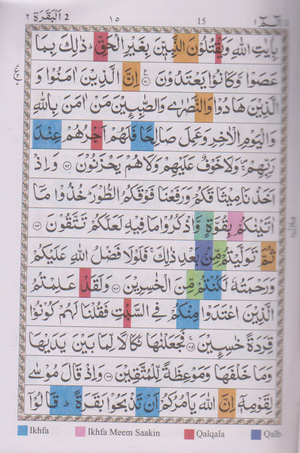 ٢ البقرة 2 ١٥ 15 الٓمّٓ ١
بِاٰيٰتِ اللّٰهِ وَيَقْتُلُوْنَ النَّبِيّٖنَ بِغَيْرِ الْحَقِّ ؕ ذٰلِكَ بِمَا
عَصَوْا وَّكَانُوْا يَعْتَدُوْنَ ﴿٦١﴾ اِنَّ الَّذِيْنَ اٰمَنُوْا وَ
الَّذِيْنَ هَادُوْا وَالنَّصٰرٰى وَالصّٰبِـِٕيْنَ مَنْ اٰمَنَ بِاللّٰهِ
وَالْيَوْمِ الْاٰخِرِ وَعَمِلَ صَالِحًا فَلَهُمْ اَجْرُهُمْ عِنْدَ
رَبِّهِمْ ۚ وَلَا خَوْفٌ عَلَيْهِمْ وَلَا هُمْ يَحْزَنُوْنَ ﴿٦٢﴾ وَاِذْ
اَخَذْنَا مِيْثَاقَكُمْ وَرَفَعْنَا فَوْقَكُمُ الطُّوْرَ ؕ خُذُوْا مَآ
اٰتَيْنٰكُمْ بِقُوَّةٍ وَّاذْكُرُوْا مَا فِيْهِ لَعَلَّكُمْ تَتَّقُوْنَ ﴿٦٣﴾
ثُمَّ تَوَلَّيْتُمْ مِّنْۢ بَعْدِ ذٰلِكَ ۚ فَلَوْلَا فَضْلُ اللّٰهِ عَلَيْكُمْ
وَرَحْمَتُهٗ لَكُنْتُمْ مِّنَ الْخٰسِرِيْنَ ﴿٦٤﴾ وَلَقَدْ عَلِمْتُمُ
الَّذِيْنَ اعْتَدَوْا مِنْكُمْ فِي السَّبْتِ فَقُلْنَا لَهُمْ كُوْنُوْا
قِرَدَةً خٰسِـِٕيْنَ ﴿٦٥﴾ فَجَعَلْنٰهَا نَكَالًا لِّمَا بَيْنَ يَدَيْهَا
وَمَا خَلْفَهَا وَمَوْعِظَةً لِّلْمُتَّقِيْنَ ﴿٦٦﴾ وَاِذْ قَالَ مُوْسٰى
لِقَوْمِهٖٓ اِنَّ اللّٰهَ يَاْمُرُكُمْ اَنْ تَذْبَحُوْا بَقَرَةً ؕ قَالُوْٓا
Ikhfa Ikhfa Meem Saakin Qalqala Qalb